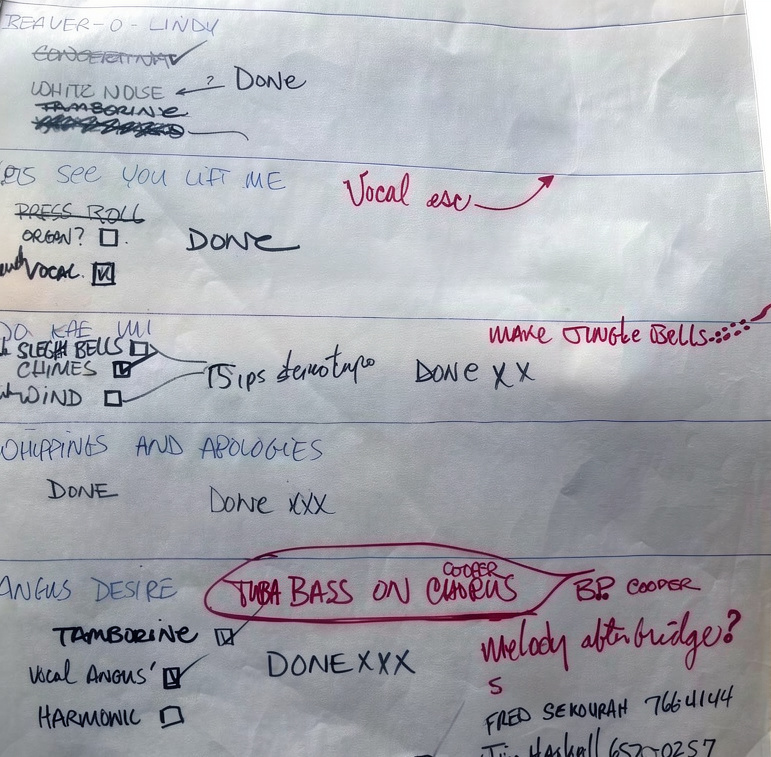 BEAVER-O-LINDY
CONCERTINA
WHITE NOISE ? DONE
TAMBORINE
SEE YOU LIFT ME
Vocal esc
PRESS ROLL
ORGAN? DONE
VOCAL
MAKE JUNGLE BELLS
DO KAE
SLEGH BELLS
CHIMES
15 ips DONE XX
WIND
WHIPPINGS AND APOLOGIES
DONE DONE XXX
ANGUS DESIRE
COOPER
TUBA BASS ON CHORUS B.P. COOPER
TAMBORINE
melody after bridge?
VOCAL ANGUS' DONE XXX
S
HARMONIC
FRED SEKOURAH 766-4144
Jim HASKELL 652-0257